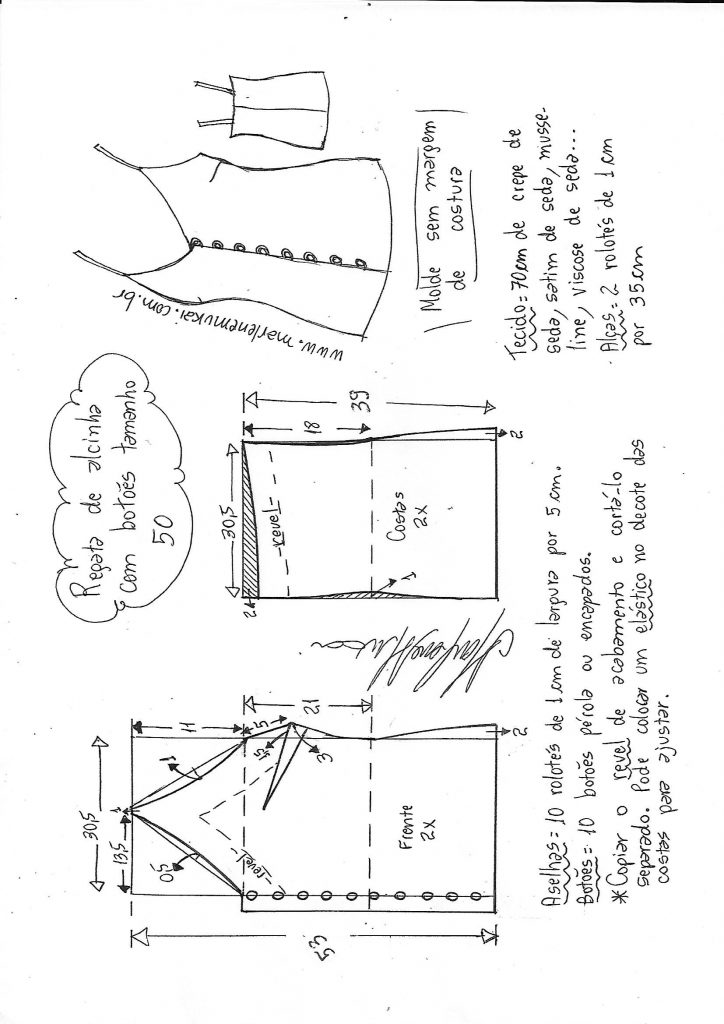 Regata de alcinha
com botões tamanho
50
www.marlenemukai.com.br
Molde sem margem
de costura
Tecido = 70cm de crepe de
seda, satim de seda, musse-
line, viscose de seda...
Alças = 2 rolotês de 1cm
por 35cm
53
30,5
13,5
1
11
1
0,5
5
1,5
3
21
revel
Frente
2x
2
30,5
2
18
39
revel
Costas
2x
1
2
Aselhas = 10 rolotês de 1cm de largura por 5cm.
Botões = 10 botões pérola ou encapados.
*Copiar o revel de acabamento e cortá-lo
separado. Pode colocar um elástico no decote das
costas para ajustar.